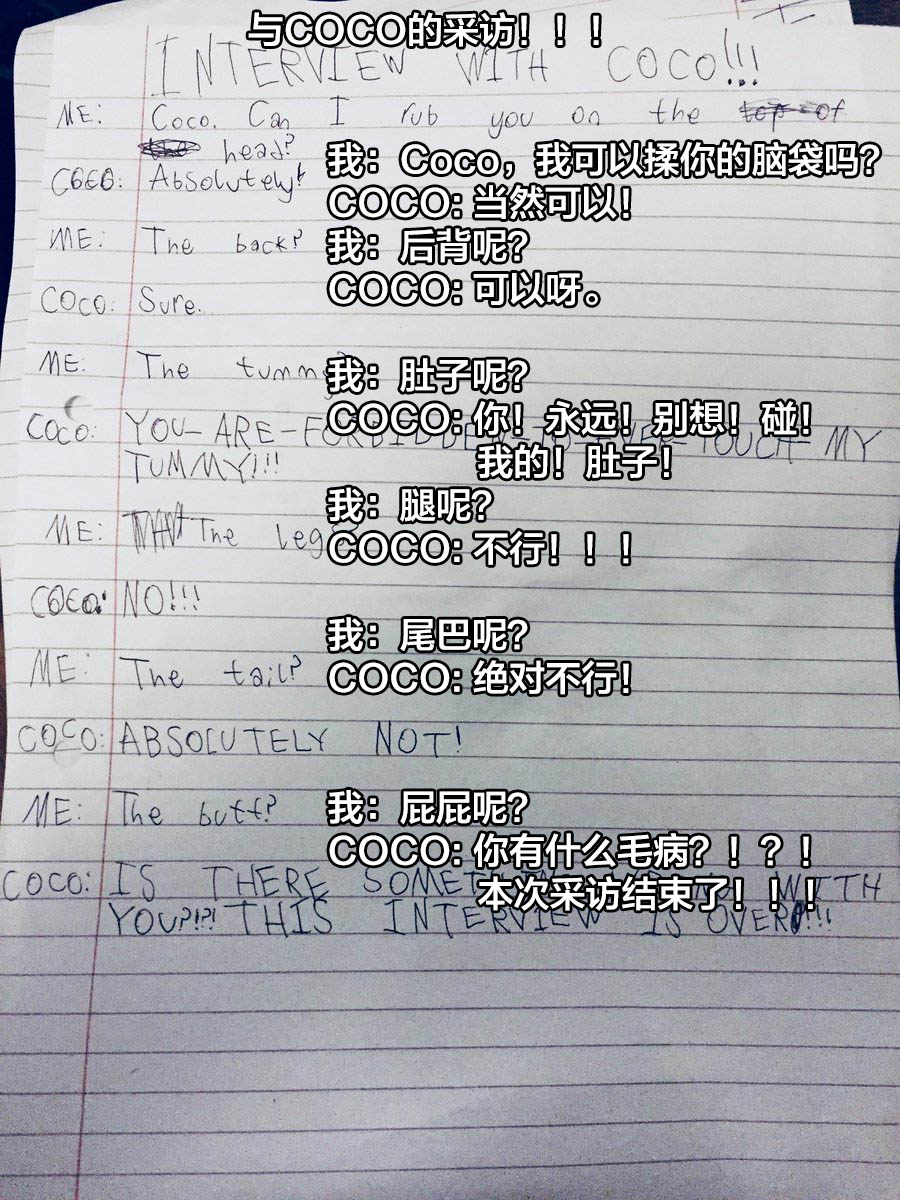 与COCO的采访！！！
INTERVIEW WITH COCO!!!
ME: Coco. Can I rub you on the top of
head?
我：Coco，我可以揉你的脑袋吗？
COCO: Absolutely!
COCO: 当然可以！
ME: The back?
我：后背呢？
COCO: Sure.
COCO: 可以呀。
ME: The tummy?
我：肚子呢？
COCO: YOU-ARE-FORBIDDEN-TO-EVER-TOUCH MY
TUMMY!!!
COCO: 你！永远！别想！碰！
我的！肚子！
ME: The legs
我：腿呢？
COCO: NO!!!
COCO: 不行！！！
ME: The tail?
我：尾巴呢？
COCO: ABSOLUTELY NOT!
COCO: 绝对不行！
ME: The butt?
我：屁屁呢？
COCO: IS THERE WITH
YOU?!?! THIS INTERVIEW IS OVER!!!
COCO: 你有什么毛病？！？！
本次采访结束了！！！